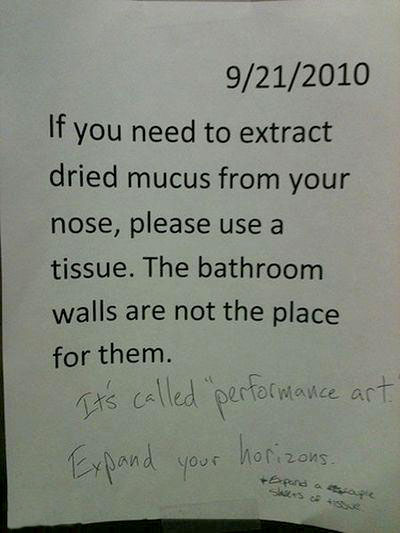 9/21/2010
If you need to extract
dried mucus from your
nose, please use a
tissue. The bathroom
walls are not the place
for them.
It's called "performance art."
Expand your horizons.
+Expand a couple
sheets of tissue